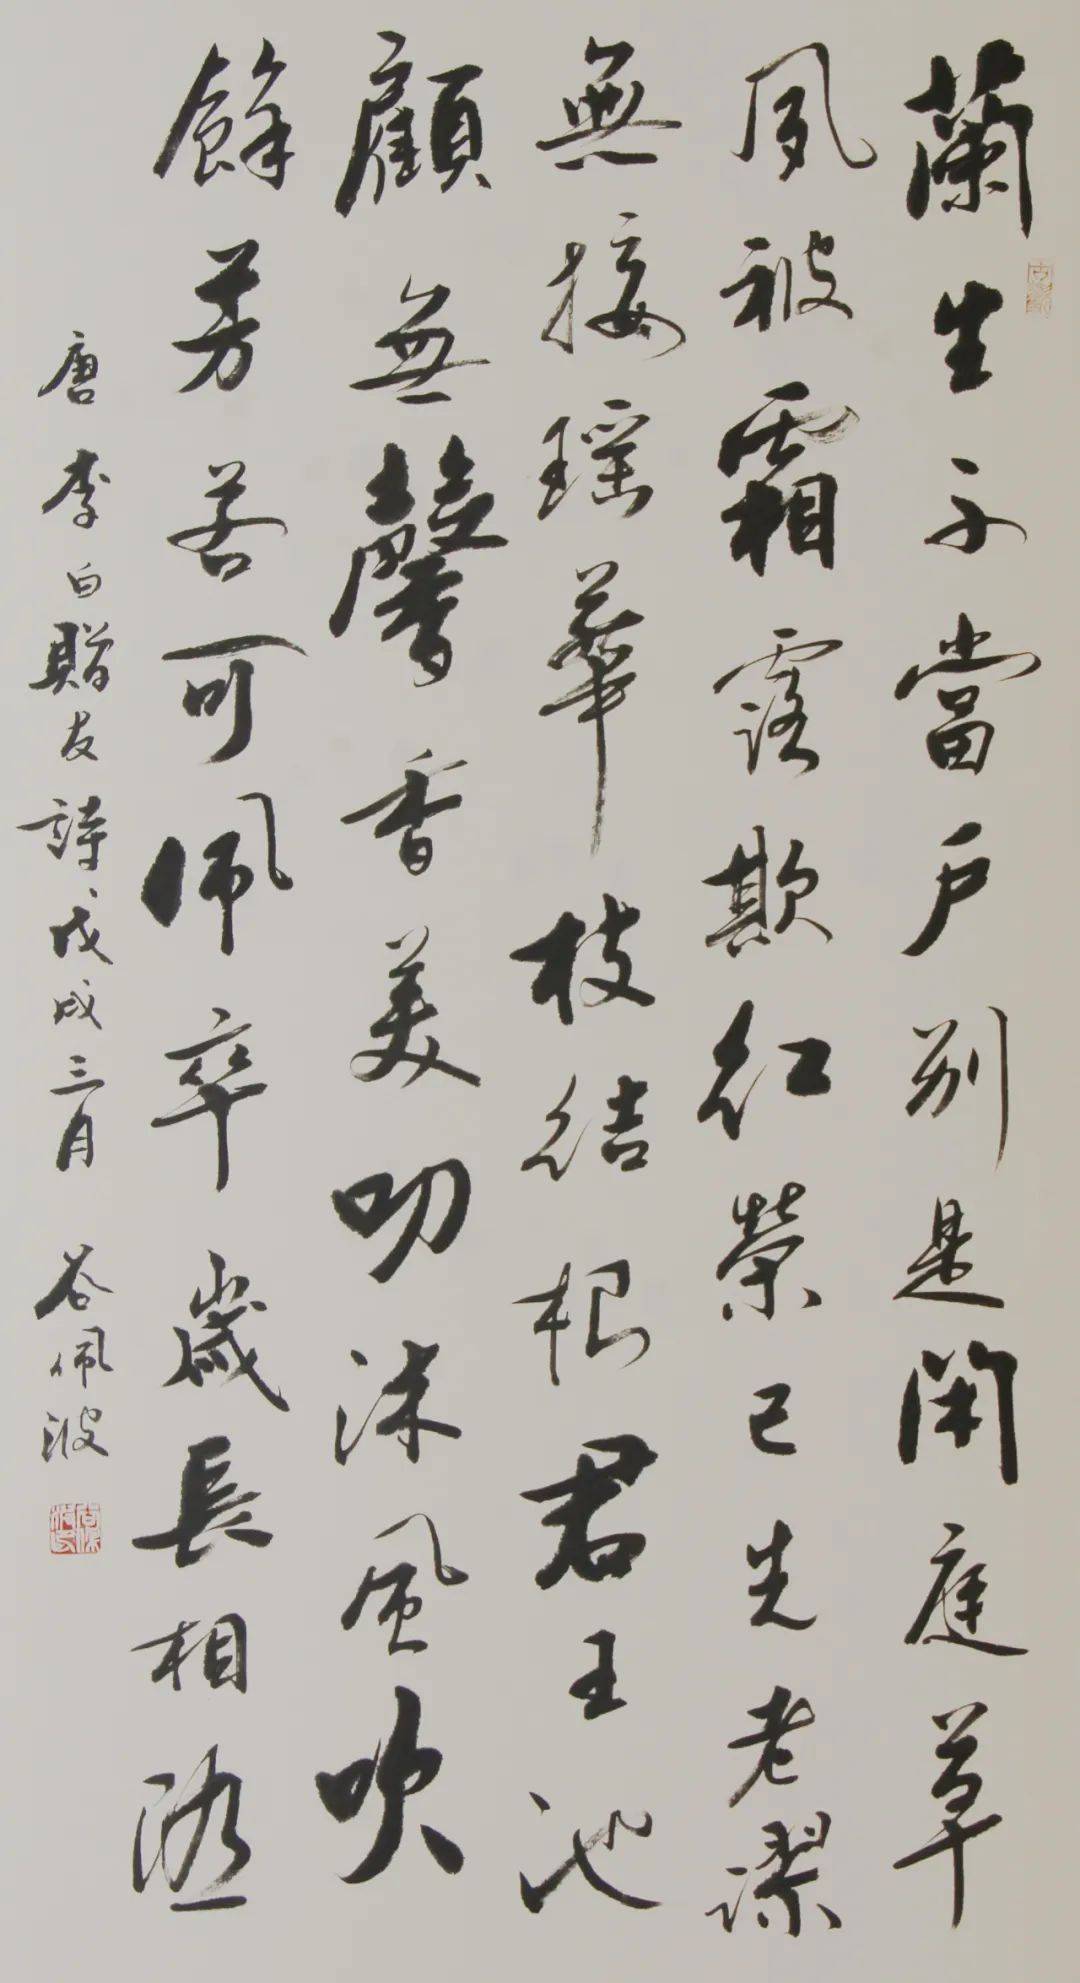 蘭生不當戶別是閑庭草
夙被霜露欺紅榮已先老謬
無接瑶華枝結根君王池
顧無馨香美叨沐風吹
餘芳若可佩卒歲長相隨
唐李白贈友詩戊戌三月 谷佩波